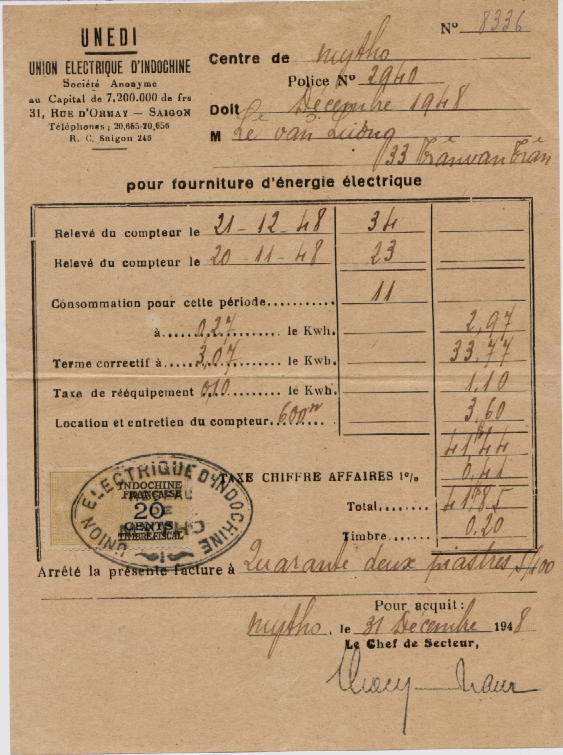 UNEDI
UNION ELECTRIQUE D'INDOCHINE
Société Anonyme
au Capital de 7,200.000 de frs
31, RUE D'OHMAY — SAIGON
Téléphones: 20,655-20,656
R. C. Saigon 246
N° 8336
Centre de Mytho
Police N° 2940
Doit Décembre 1948
M Lê Văn Lương
33 Trân van Trân
pour fourniture d'énergie électrique
Relevé du compteur le 21-12-48 34
Relevé du compteur le 20-11-48 23
Consommation pour cette période.......... 11
à......0,27.........le Kwh. 2,97
Terme correctif à....3,07......le Kwh. 33,77
Taxe de rééquipement 0,10 le Kwh. 1,10
Location et entretien du compteur..600w.... 3,60
41$44
TAXE CHIFFRE AFFAIRES 1% 0,41
Total....... 41$85
Timbre...... 0,20
UNION ELECTRIQUE D'INDOCHINE
INDOCHINE
FRANÇAISE
20
CENTS
TIMBRE FISCAL
Arrêté la présente facture à Quarante deux piastres, 5/100
Pour acquit:
Mytho, le 31 Décembre 1948
Le Chef de Secteur,